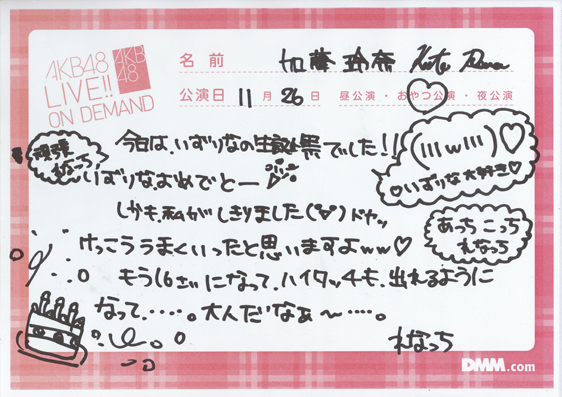 AKB48
LIVE!!
ON DEMAND
AKB
48
名前 加藤玲奈 Kato Rena
公演日 11月26日 昼公演・おやつ公演・夜公演
今日は、いずりなの生誕祭でした！！
頑張
れなっち
いずりなおめでとー
(ııı w ııı)♡
♡いずりな大好き♡
しかも私がしきりました(˘▽˘)ドヤッ
あっち こっち
れなっち
けっこううまくいったと思いますよww♡
もう16さいになって、ハイタッチも、出れるように
なって、・・・・。大人だなぁ〜・・・・。
れなっち
DMM.com